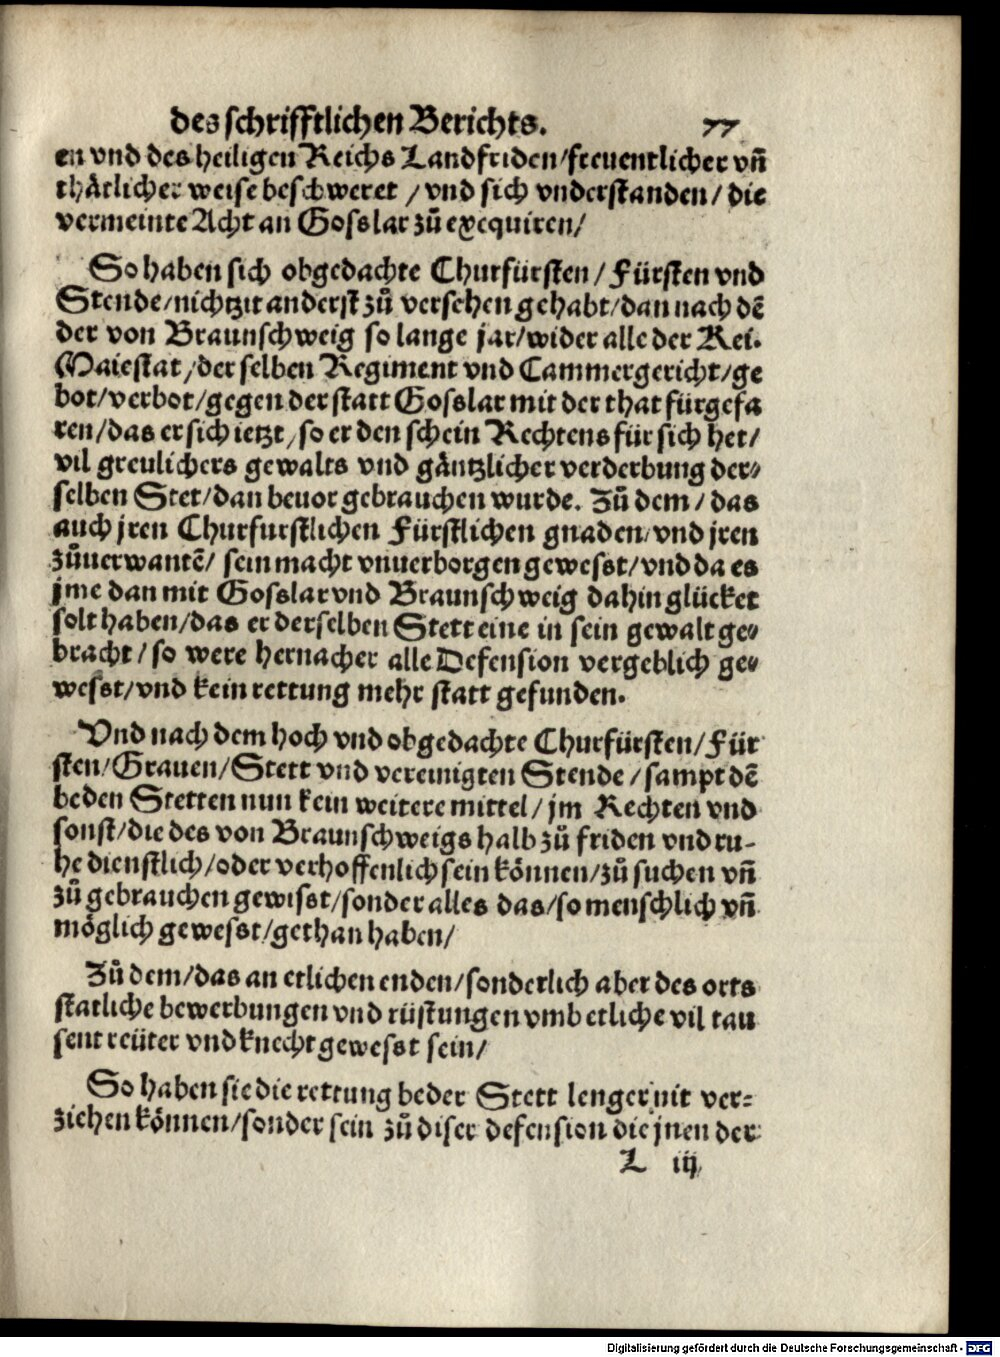 des schrifftlichen Berichts. 77
en vnd des heiligen Reichs Landfriden/freuentlicher vñ
thätlicher weise beschweret / vnd sich vnderstanden/ die
vermeinte Acht an Gosslar zů exequiren/
So haben sich obgedachte Churfürsten/ Fürsten vnd
Stende/nichtzit anderst zů versehen gehabt/dan nach dē
der von Braunschweig so lange jar/wider alle der Kei.
Maiestat/der selben Regiment vnd Cammergericht/ge
bot/verbot/gegen der statt Gosslar mit der that fürgefa
ren/das er sich ietzt/so er den schein Rechtens für sich het/
vil greulichers gewalts vnd gäntzlicher verderbung der-
selben Stet/dan beuor gebrauchen wurde. Zů dem/ das
auch jren Churfurstlichen Fürstlichen gnaden/vnd jren
zůuerwantē/ sein macht vnuerborgen gewesst/vnd da es
jme dan mit Gosslar vnd Braunschweig dahin glücket
solt haben/das er derselben Stett eine in sein gewalt ge-
bracht/so were hernacher alle Defension vergeblich ge-
wesst/vnd kein rettung mehr statt gefunden.
Vnd nach dem hoch vnd obgedachte Churfürsten/Für
sten/Grauen/Stett vnd vereinigten Stende/sampt dē
beden Stetten nun kein weitere mittel/jm Rechten vnd
sonst/die des von Braunschweigs halb zů friden vnd ru-
he dienstlich/oder verhoffenlich sein können/zů suchen vñ
zů gebrauchen gewisst/sonder alles das/so menschlich vñ
möglich gewesst/gethan haben/
Zů dem/das an etlichen enden/sonderlich aber des orts
statliche bewerbungen vnd rüstungen vmb etliche vil tau
sent reüter vnd knecht gewesst sein/
So haben sie die rettung beder Stett lenger nit ver-
ziehen können/sonder sein zů diser defension die jnen der
L iij
Digitalisierung gefördert durch die Deutsche Forschungsgemeinschaft - DFG